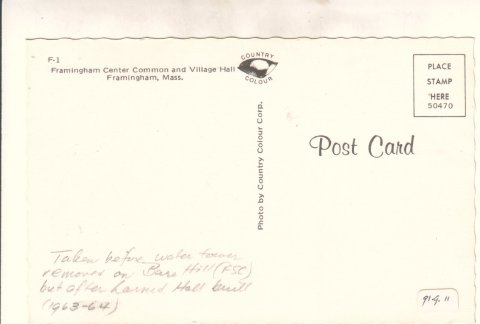 F-1
Framingham Center Common and Village Hall
Framingham, Mass.
COUNTRY
COLOUR
PLACE
STAMP
HERE
50470
Photo by Country Colour Corp.
Post Card
Taken before water tower
removed on Bare Hill (FSC)
but after Larned Hall built
(1963-64)
91.9.11